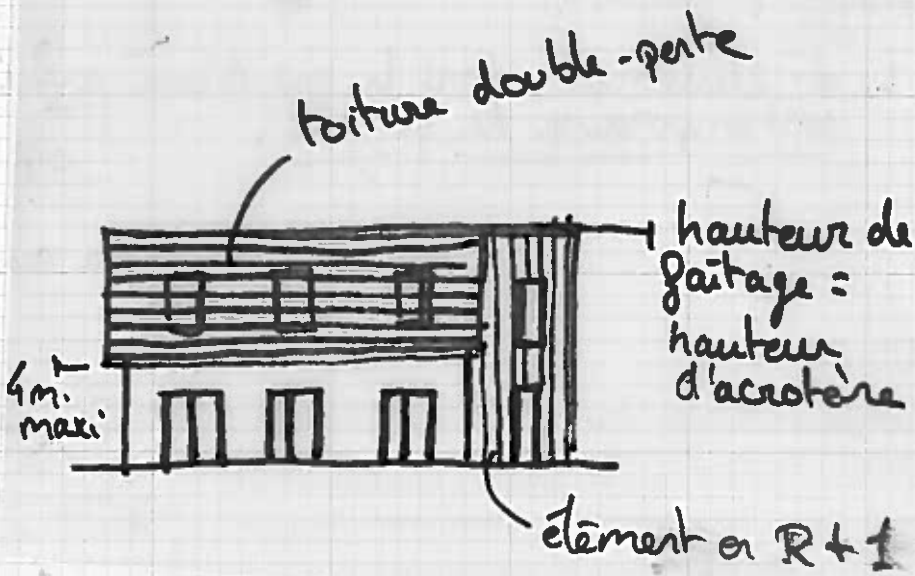 toiture double-pente
hauteur de
faîtage =
hauteur
d'acrotère
4m.
maxi
élément en R+1